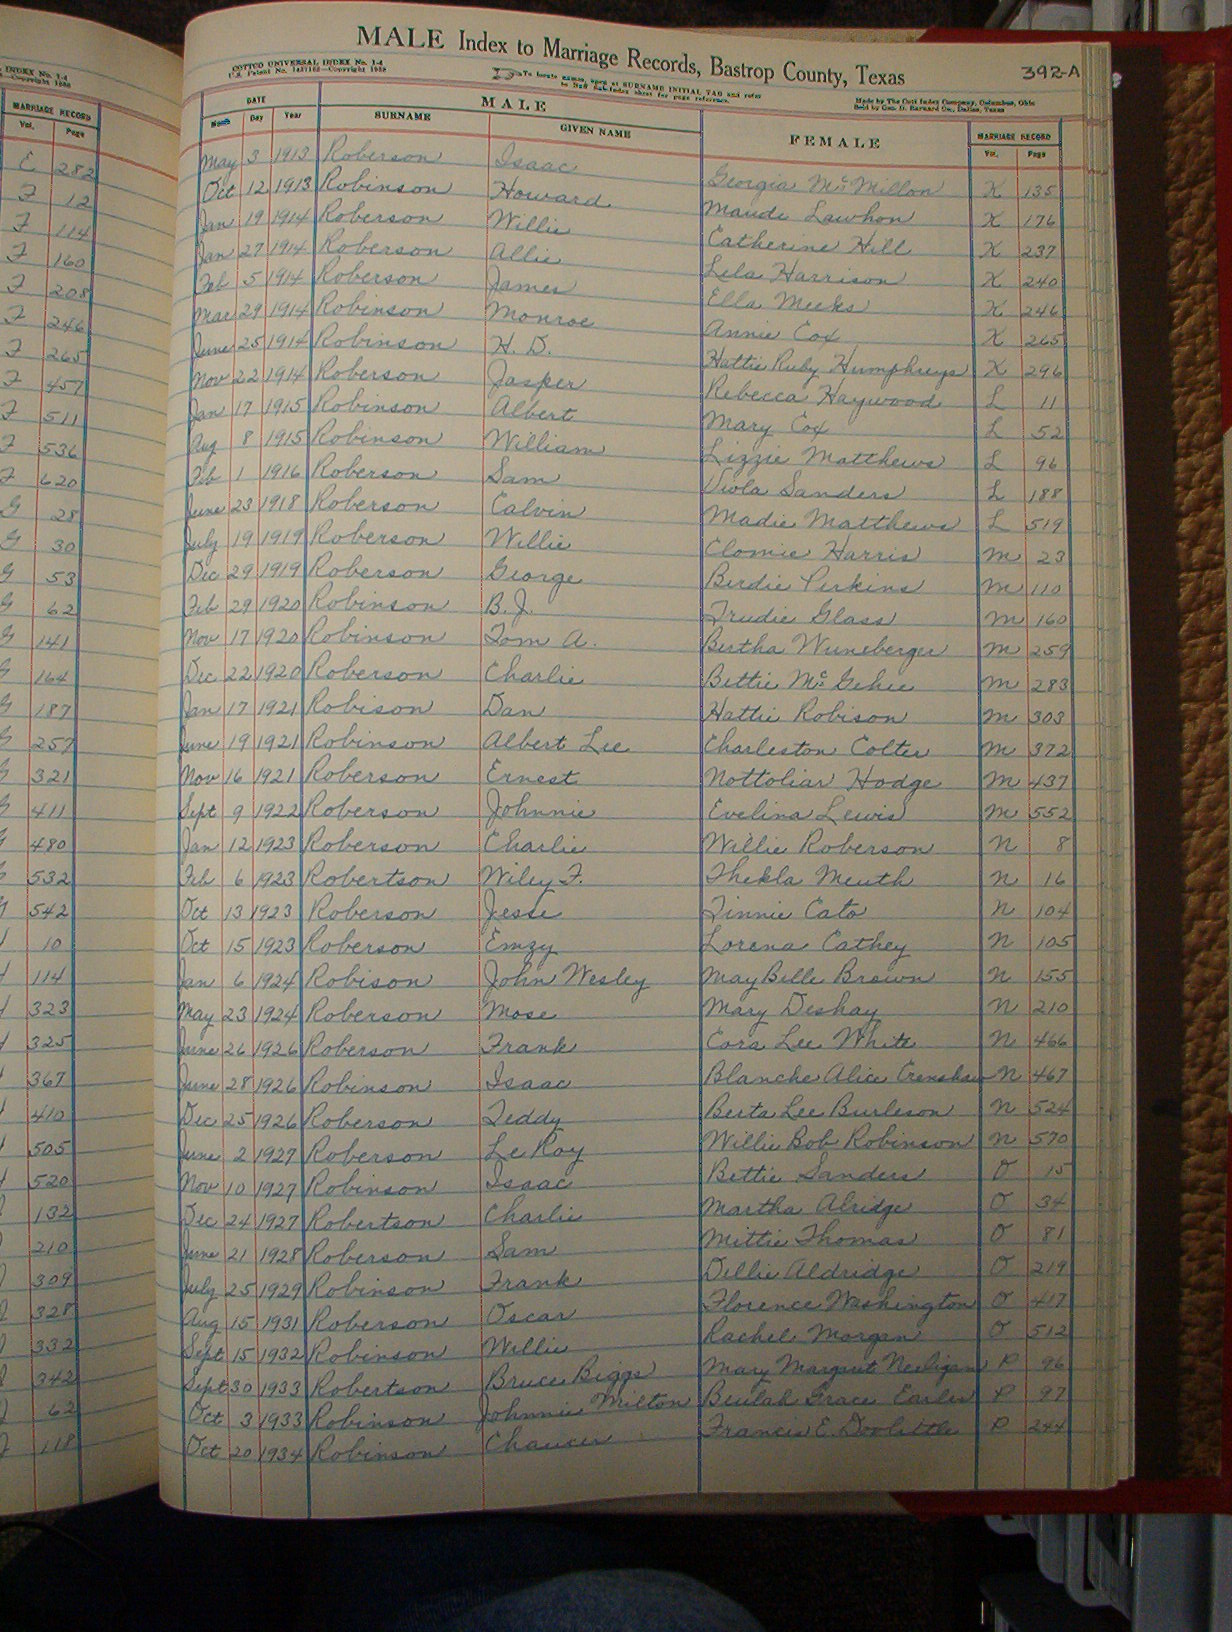 INDEX No. 1-4
MARRIAGE RECORD
Vol. Page
E 282
F 12
F 114
F 160
F 208
F 246
F 265
F 457
F 511
F 536
F 620
G 28
G 30
G 53
G 62
G 141
G 164
G 187
G 257
G 321
G 411
G 480
G 532
G 542
10
114
323
325
367
410
505
520
132
210
309
328
332
342
62
118
MALE Index to Marriage Records, Bastrop County, Texas
392-A
COTTCO UNIVERSAL INDEX No. 1-4
To locate names, open at SURNAME INITIAL TAB and refer
to Stiff Sub-Index sheet for page reference.
Made by The Cott Index Company, Columbus, Ohio
DATE MALE FEMALE MARRIAGE RECORD
Month Day Year SURNAME GIVEN NAME Vol. Page
May 3 1913 Roberson Isaac Georgia McMillon K 135
Oct 12 1913 Robinson Howard Maude Lawhon K 176
Jan 19 1914 Roberson Willie Catherine Hill K 237
Jan 27 1914 Roberson Allie Lela Harrison K 240
Feb 5 1914 Roberson James Ella Meeks K 246
Mar 29 1914 Robinson Monroe Annie Cox K 265
June 25 1914 Robinson H. D. Hattie Ruby Humphreys K 296
Nov 22 1914 Roberson Jasper Rebecca Haywood L 11
Jan 17 1915 Robinson Albert Mary Cox L 52
Aug 8 1915 Robinson William Lizzie Matthews L 96
Feb 1 1916 Roberson Sam Viola Sanders L 188
June 23 1918 Roberson Calvin Madie Matthews L 519
July 19 1919 Roberson Willie Clomie Harris M 23
Dec 29 1919 Roberson George Birdie Perkins M 110
Feb 29 1920 Robinson B. J. Trudie Glass M 160
Nov 17 1920 Robinson Tom A. Bertha Wuneberger M 259
Dec 22 1920 Roberson Charlie Bettie McGehee M 283
Jan 17 1921 Robison Dan Hattie Robison M 303
June 19 1921 Robinson Albert Lee Charleston Colter M 372
Nov 16 1921 Roberson Ernest Nottoliar Hodge M 437
Sept 9 1922 Roberson Johnnie Evelina Lewis M 552
Jan 12 1923 Roberson Charlie Willie Roberson N 8
Feb 6 1923 Robertson Wiley F. Thekla Meuth N 16
Oct 13 1923 Roberson Jesse Tinnie Cato N 104
Oct 15 1923 Roberson Emzy Lorena Cathey N 105
Jan 6 1924 Robison John Wesley May Belle Brown N 155
May 23 1924 Roberson Mose Mary Deshay N 210
June 26 1926 Roberson Frank Cora Lee White N 466
June 28 1926 Robinson Isaac Blanche Alice Crenshaw N 467
Dec 25 1926 Roberson Teddy Berta Lee Burleson N 524
June 2 1927 Roberson Le Roy Willie Bob Robinson N 570
Nov 10 1927 Robinson Isaac Bettie Sanders O 15
Dec 24 1927 Robertson Charlie Martha Alridge O 34
June 21 1928 Roberson Sam Mittie Thomas O 81
July 25 1929 Robinson Frank Dellie Aldridge O 219
Aug 15 1931 Roberson Oscar Florence Washington O 417
Sept 15 1932 Robinson Willie Rachel Morgan O 512
Sept 30 1933 Robertson Bruce Biggs Mary Margret Neeligan P 96
Oct 3 1933 Robinson Johnnie Milton Beulah Grace Earles P 97
Oct 20 1934 Robinson Chaucer Francis E. Doolittle P 244